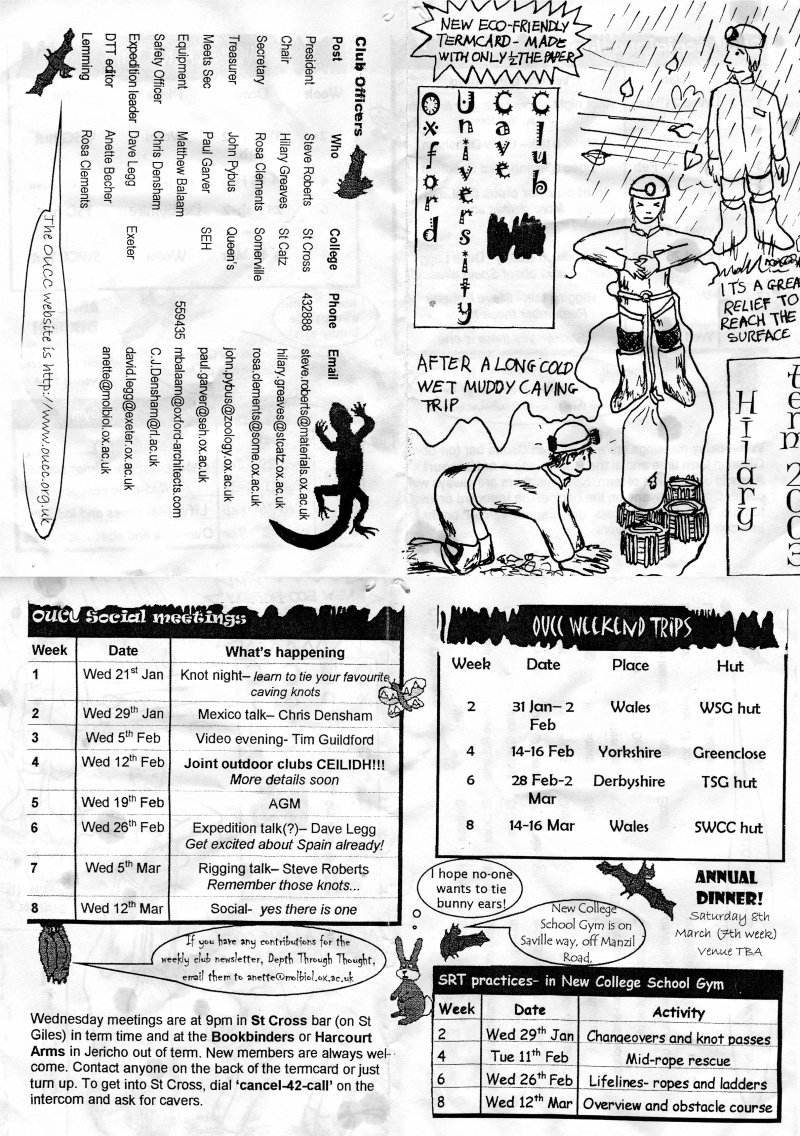 NEW ECO-FRIENDLY
TERMCARD- MADE
WITH ONLY ½ THE PAPER
Oxford
University
Cave
Club
IT'S A GREA
RELIEF TO
REACH THE
SURFACE
AFTER A LONG COLD
WET MUDDY CAVING
TRIP
Hilary
term 2003
Club Officers
Post Who College Phone Email
President Steve Roberts St Cross 432888 steve.roberts@materials.ox.ac.uk
Chair Hilary Greaves St Catz hilary.greaves@stcatz.ox.ac.uk
Secretary Rosa Clements Somerville rosa.clements@some.ox.ac.uk
Treasurer John Pybus Queen's john.pybus@zoology.ox.ac.uk
Meets Sec Paul Garver SEH paul.garver@seh.ox.ac.uk
Equipment Matthew Balaam 559435 mbalaam@oxford-architects.com
Safety Officer Chris Densham C.J.Densham@rl.ac.uk
Expedition leader Dave Legg Exeter david.legg@exeter.ox.ac.uk
DTT editor Anette Becher anette@molbiol.ox.ac.uk
Lemming Rosa Clements
The OUCC website is http://www.oucc.org.uk
OUCC Social meetings
Week Date What's happening
1 Wed 21st Jan Knot night– learn to tie your favourite
caving knots
2 Wed 29th Jan Mexico talk– Chris Densham
3 Wed 5th Feb Video evening- Tim Guildford
4 Wed 12th Feb Joint outdoor clubs CEILIDH!!!
More details soon
5 Wed 19th Feb AGM
6 Wed 26th Feb Expedition talk(?)– Dave Legg
Get excited about Spain already!
7 Wed 5th Mar Rigging talk– Steve Roberts
Remember those knots...
8 Wed 12th Mar Social- yes there is one
If you have any contributions for the
weekly club newsletter, Depth Through Thought,
email them to anette@molbiol.ox.ac.uk
Wednesday meetings are at 9pm in St Cross bar (on St
Giles) in term time and at the Bookbinders or Harcourt
Arms in Jericho out of term. New members are always wel-
come. Contact anyone on the back of the termcard or just
turn up. To get into St Cross, dial 'cancel-42-call' on the
intercom and ask for cavers.
OUCC WEEKEND TRIPS
Week Date Place Hut
2 31 Jan– 2 Wales WSG hut
Feb
4 14-16 Feb Yorkshire Greenclose
6 28 Feb-2 Derbyshire TSG hut
Mar
8 14-16 Mar Wales SWCC hut
I hope no-one
wants to tie
bunny ears!
New College
School Gym is on
Saville way, off Manzil
Road,
ANNUAL
DINNER!
Saturday 8th
March (7th week)
Venue TBA
SRT practices- in New College School Gym
Week Date Activity
2 Wed 29th Jan Changeovers and knot passes
4 Tue 11th Feb Mid-rope rescue
6 Wed 26th Feb Lifelines- ropes and ladders
8 Wed 12th Mar Overview and obstacle course